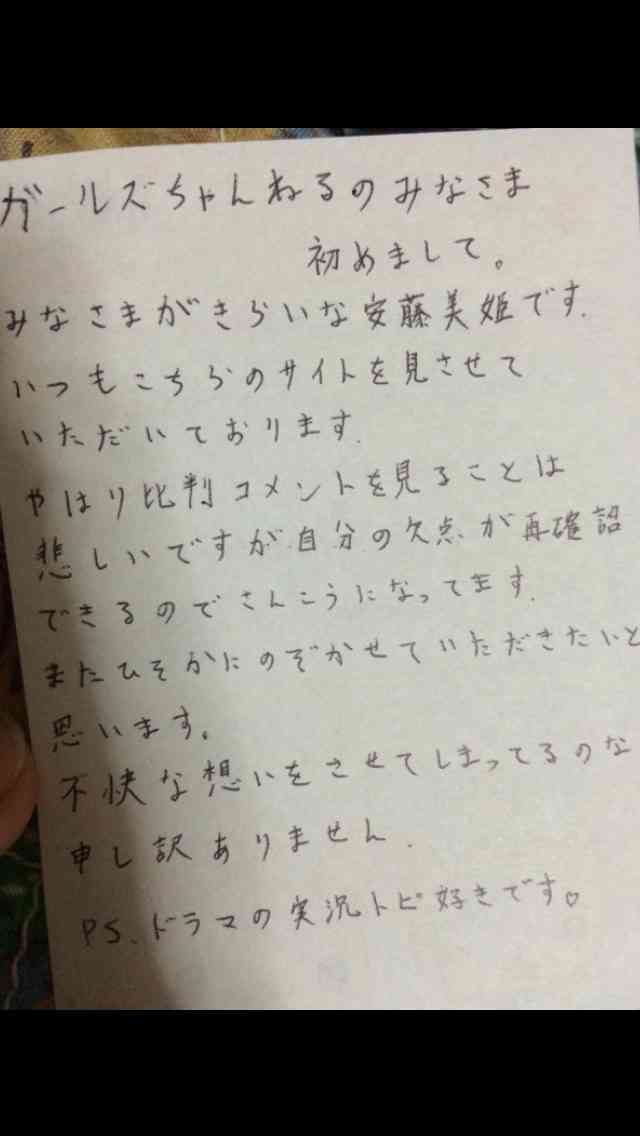 ガールズちゃんねるのみなさま
初めまして。
みなさまがきらいな安藤美姫です.
いつもこちらのサイトを見させて
いただいております.
やはり比判コメントを見ることは
悲しいですが自分の欠点が再確認
できるのでさんこうになってます.
またひそかにのぞかせていただきたいと
思います。
不快な想いをさせてしまってるのな
申し訳ありません.
PS.ドラマの実況トピ好きです。